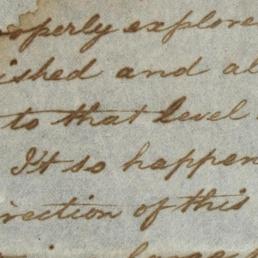 roperly explore
ished and al
to that Level
It so happen
rection of this